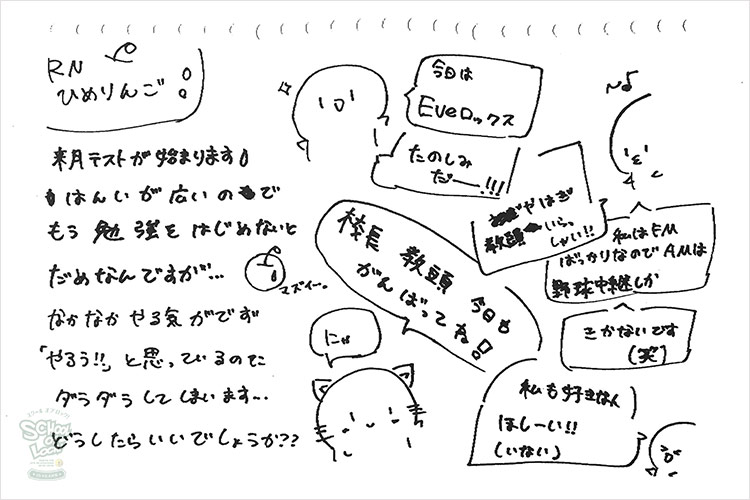 RN
ひめりんご
来月テストが始まります
はんいが広いので
もう勉強をはじめないと
だめなんですが…
マズイー。
なかなかやる気がでず
「やろう!!」と思っているのに
ダラダラしてしまいます…
どうしたらいいでしょうか??
今日は
Eveロックス
たのしみ
だー!!!
やはぎ
教頭いらっ
しゃい!!
校長 教頭 今日も
がんばってね!
私はFM
ばっかりなのでAMは
野球中継しか
きかないです
(笑)
にゃ
私も好きな人
ほしーい!!
(いない)
SCHOOL
OF
LOCK!